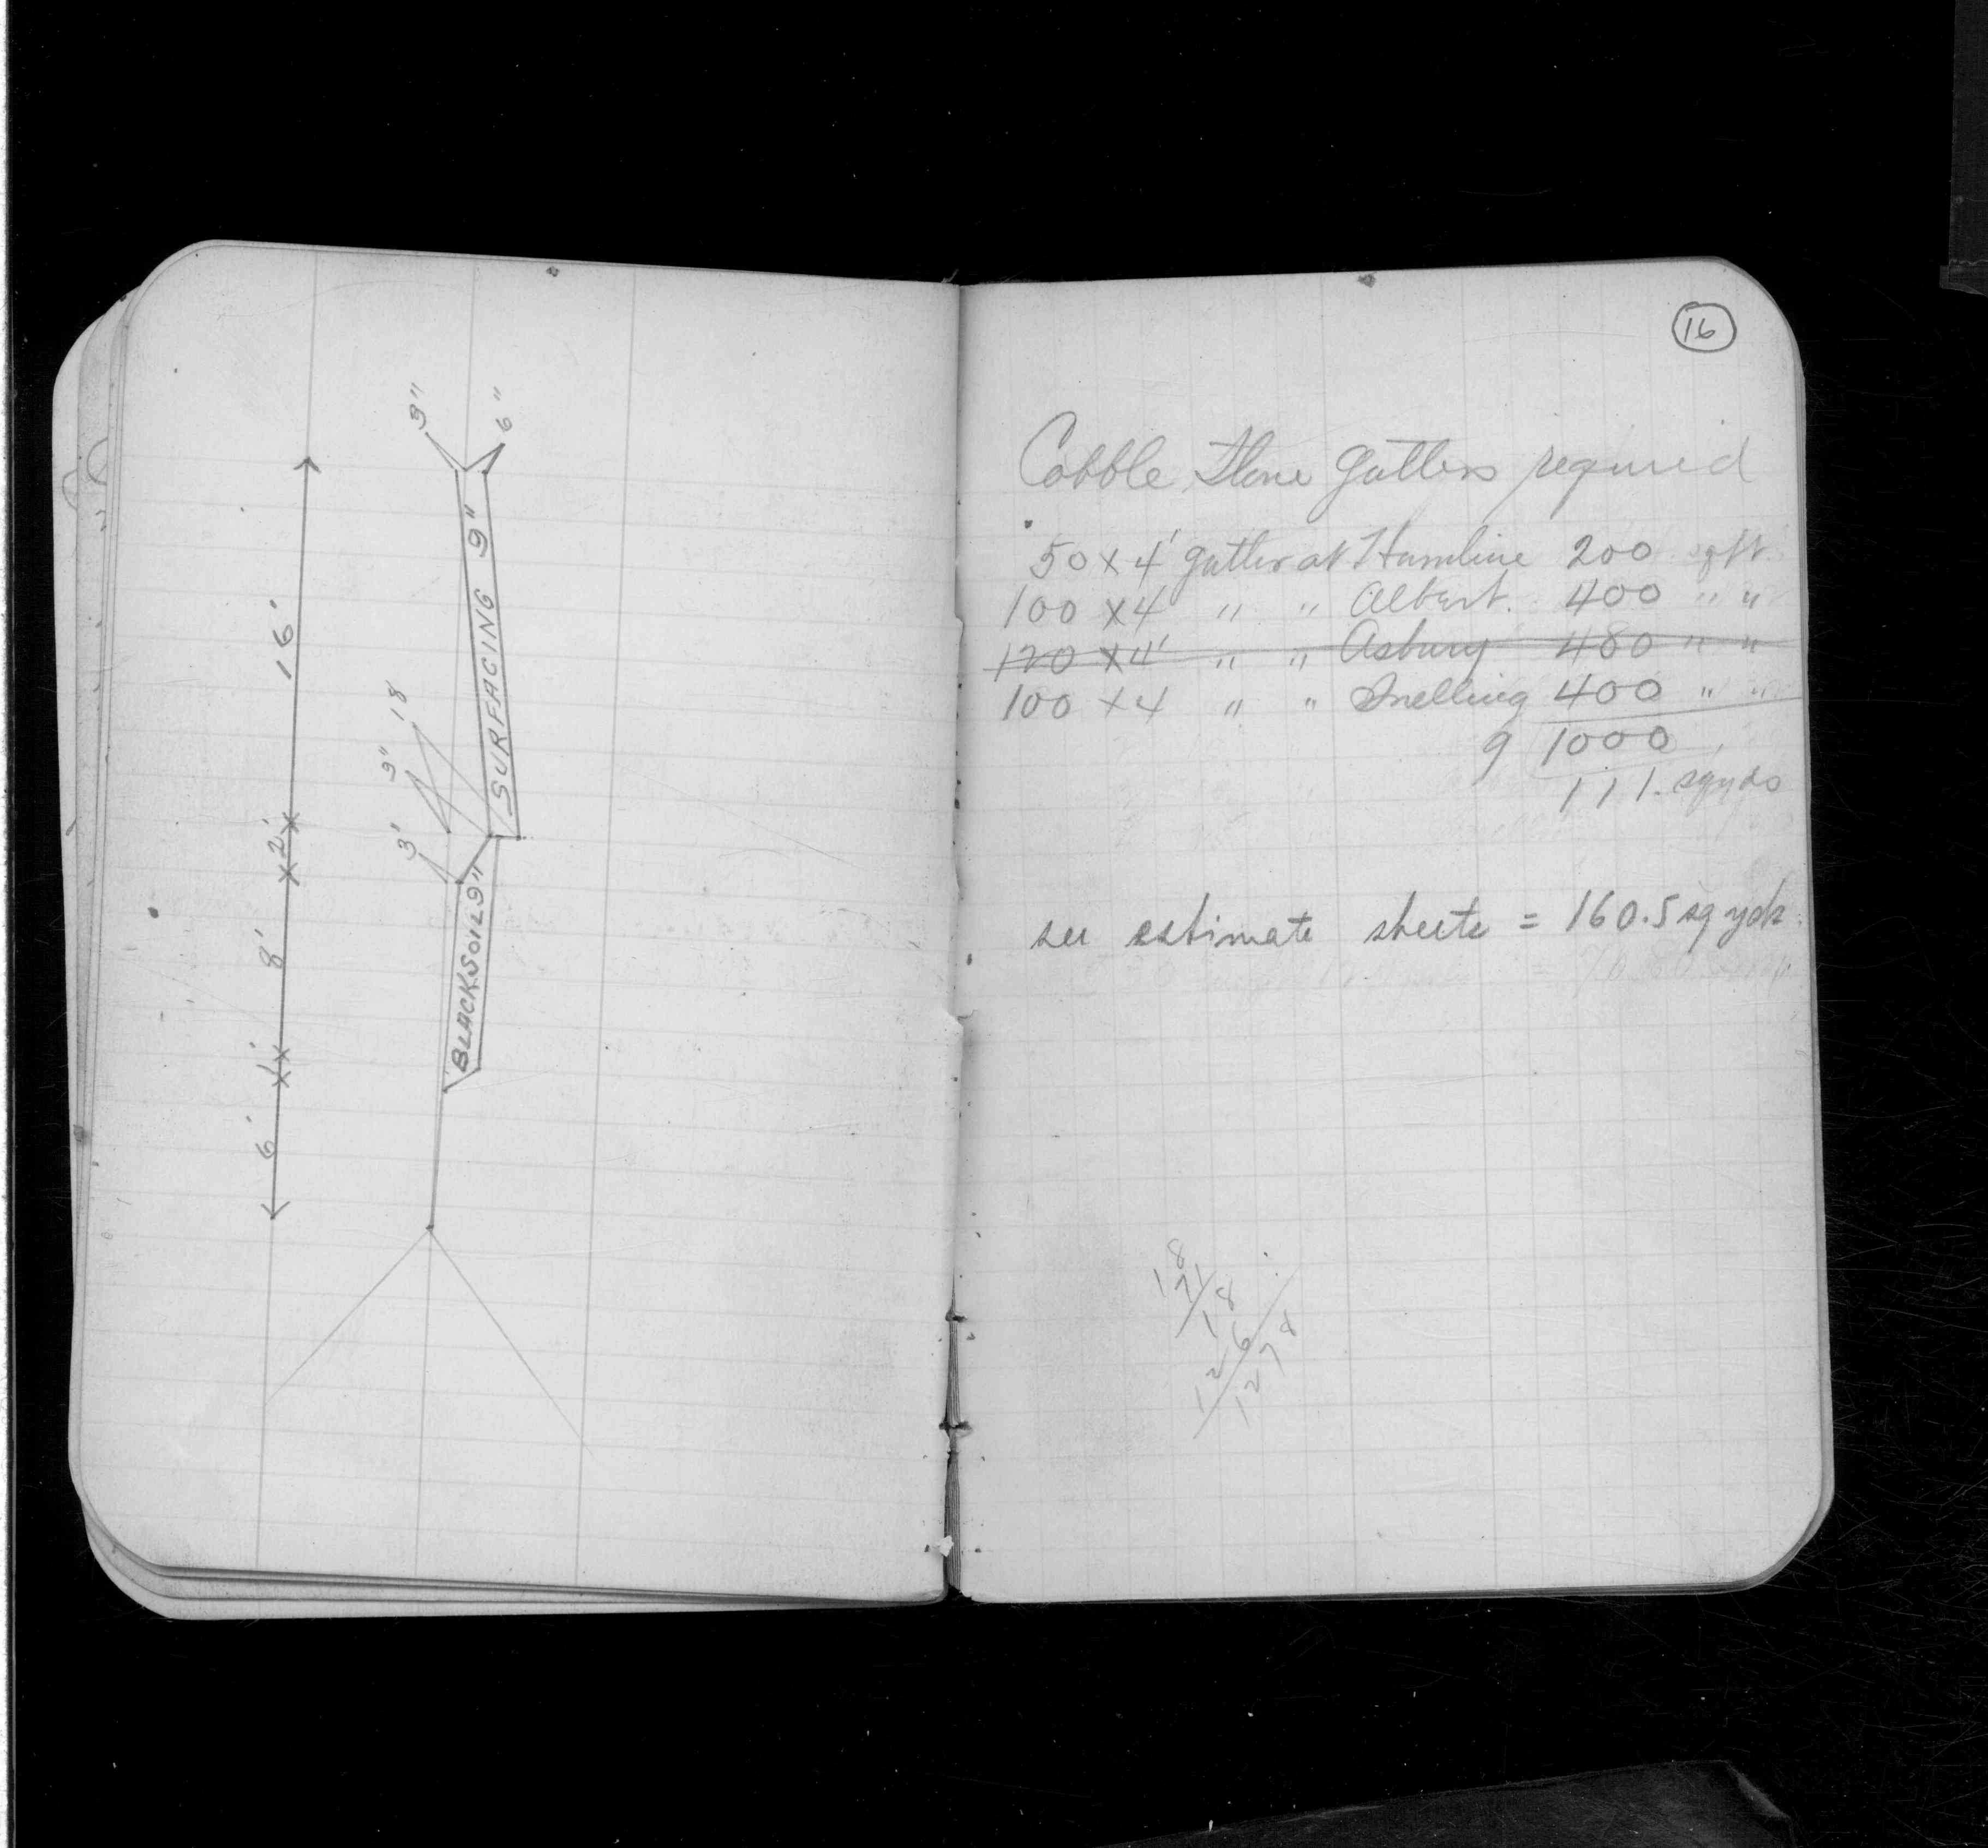 16'
2'
8'
1'
6'
3"
6"
SURFACING 9"
18
9"
3'
BLACKSOIL 9"
16
Cobble Stone Gutters required
50 x 4' gutter at Hamline 200 sq ft.
100 x 4' " " Albert. 400 " "
120 x 4' " " Asbury 480 " "
100 x 4 " " Snelling 400 " "
9 1000
111. sq yds
see estimate sheets = 160.5 sq yds.
8
171
18
126
1278